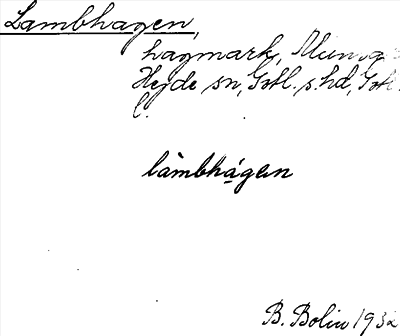 Lambhagen,
hagmark,
Hejde sn, Gotl. s. hd, Gotl.
l.
làmbhá̱gen
B. Bolin 1932